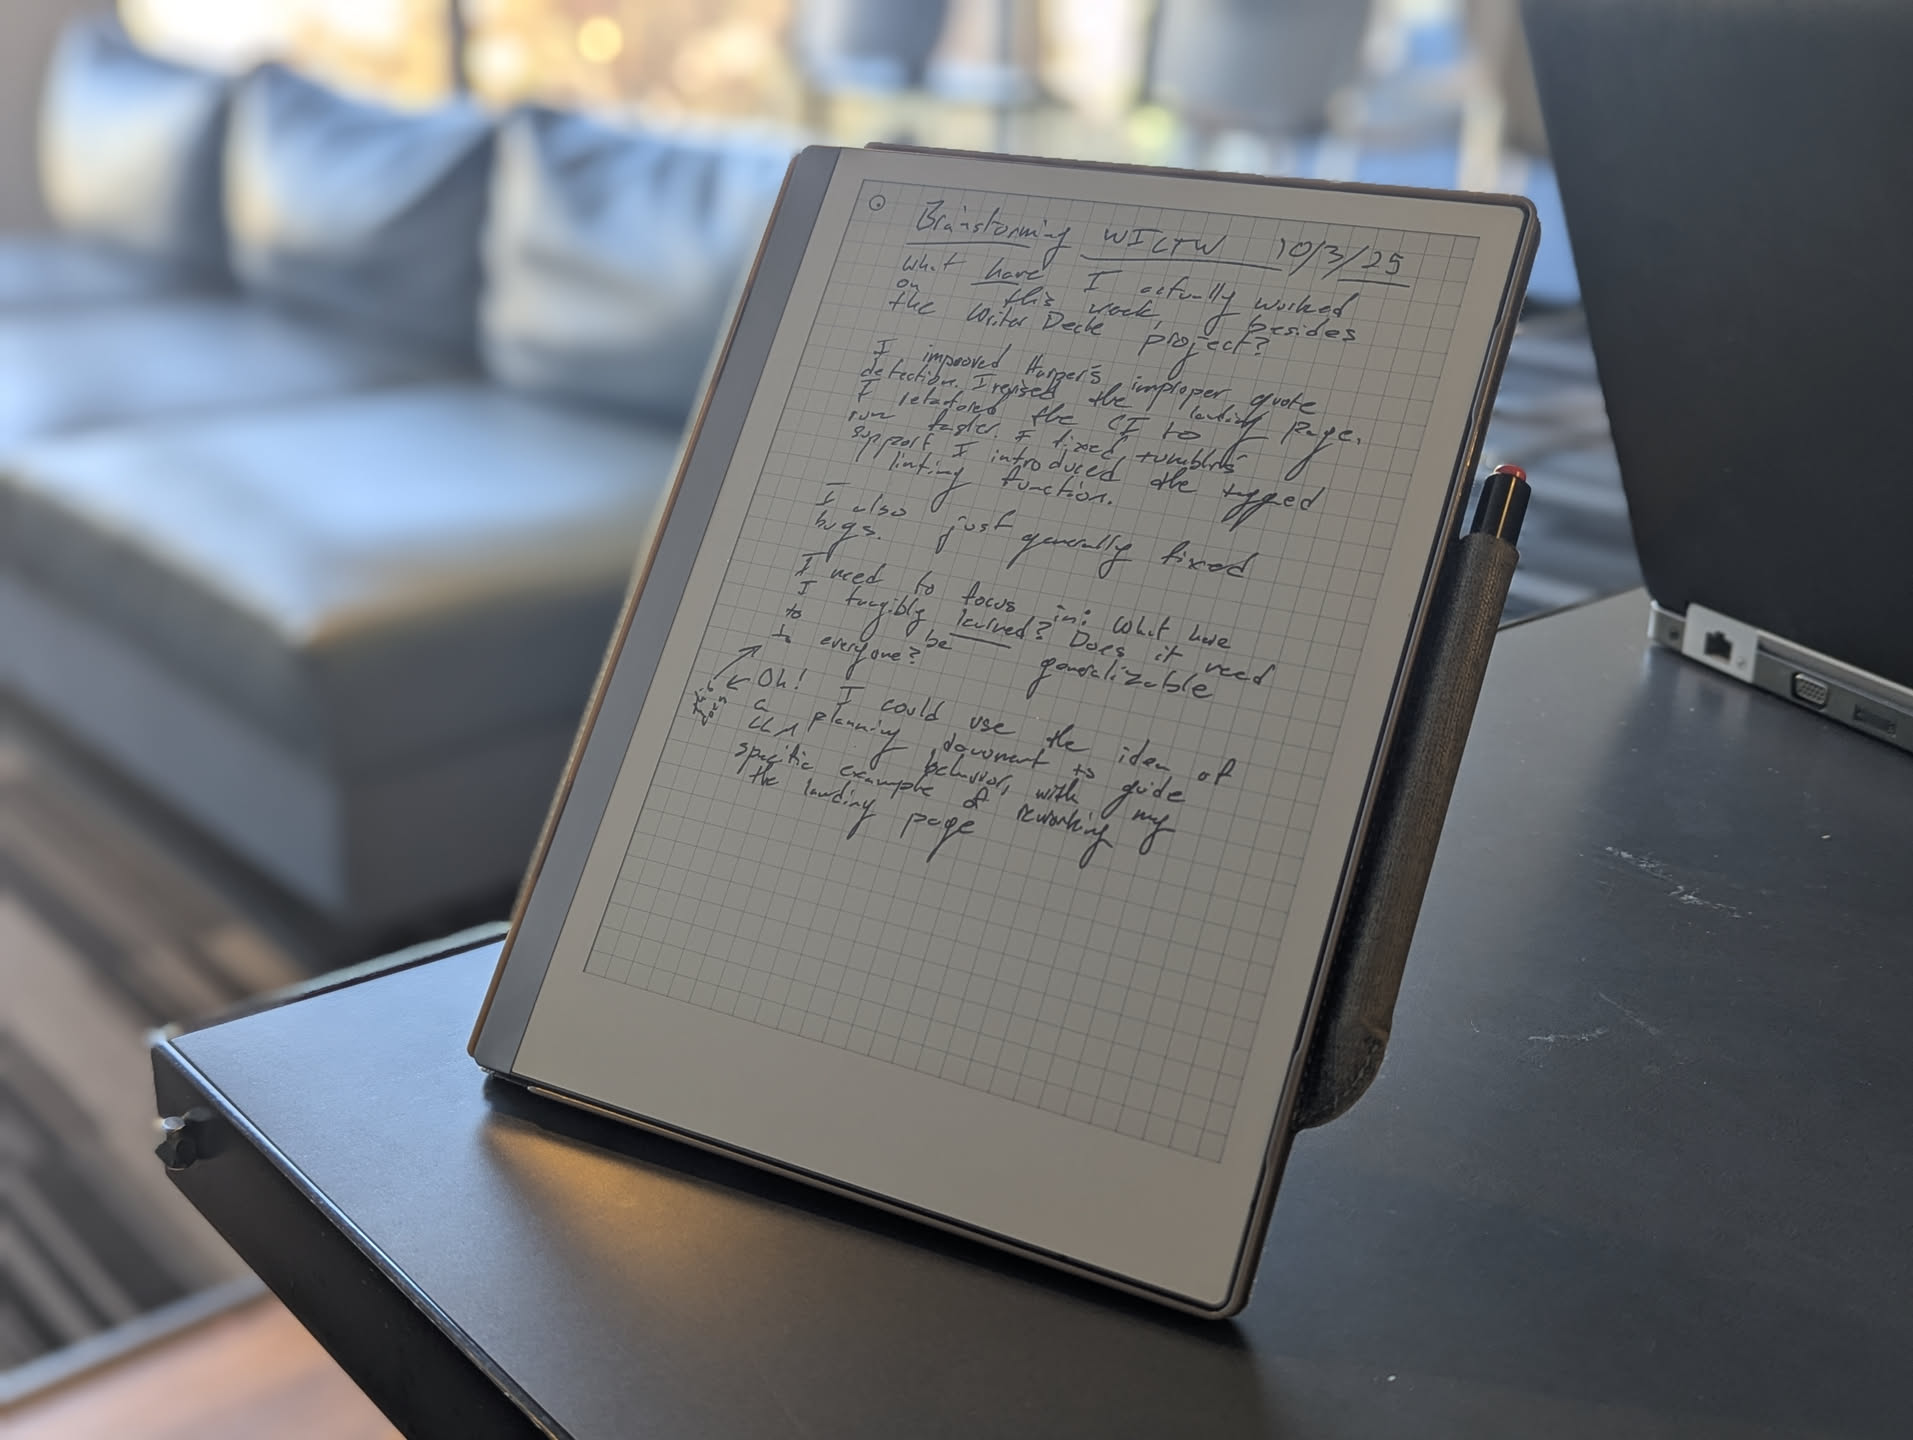 Brainstorming WICTW 10/3/25
What have I actually worked
on this week, besides
the Writer Deck project?
I improved Harper's improper quote
detection. I revised the landing page.
I refactored the CI to
run faster. I fixed tumblrs
support. I introduced the tagged
linting function.
I also just generally fixed
bugs.
I need to focus in: What have
I tangibly learned? Does it need
to be generalizable
to everyone?
Oh! I could use the idea of
a planning document to guide
behavior, with my
specific example of reworking
the landing page